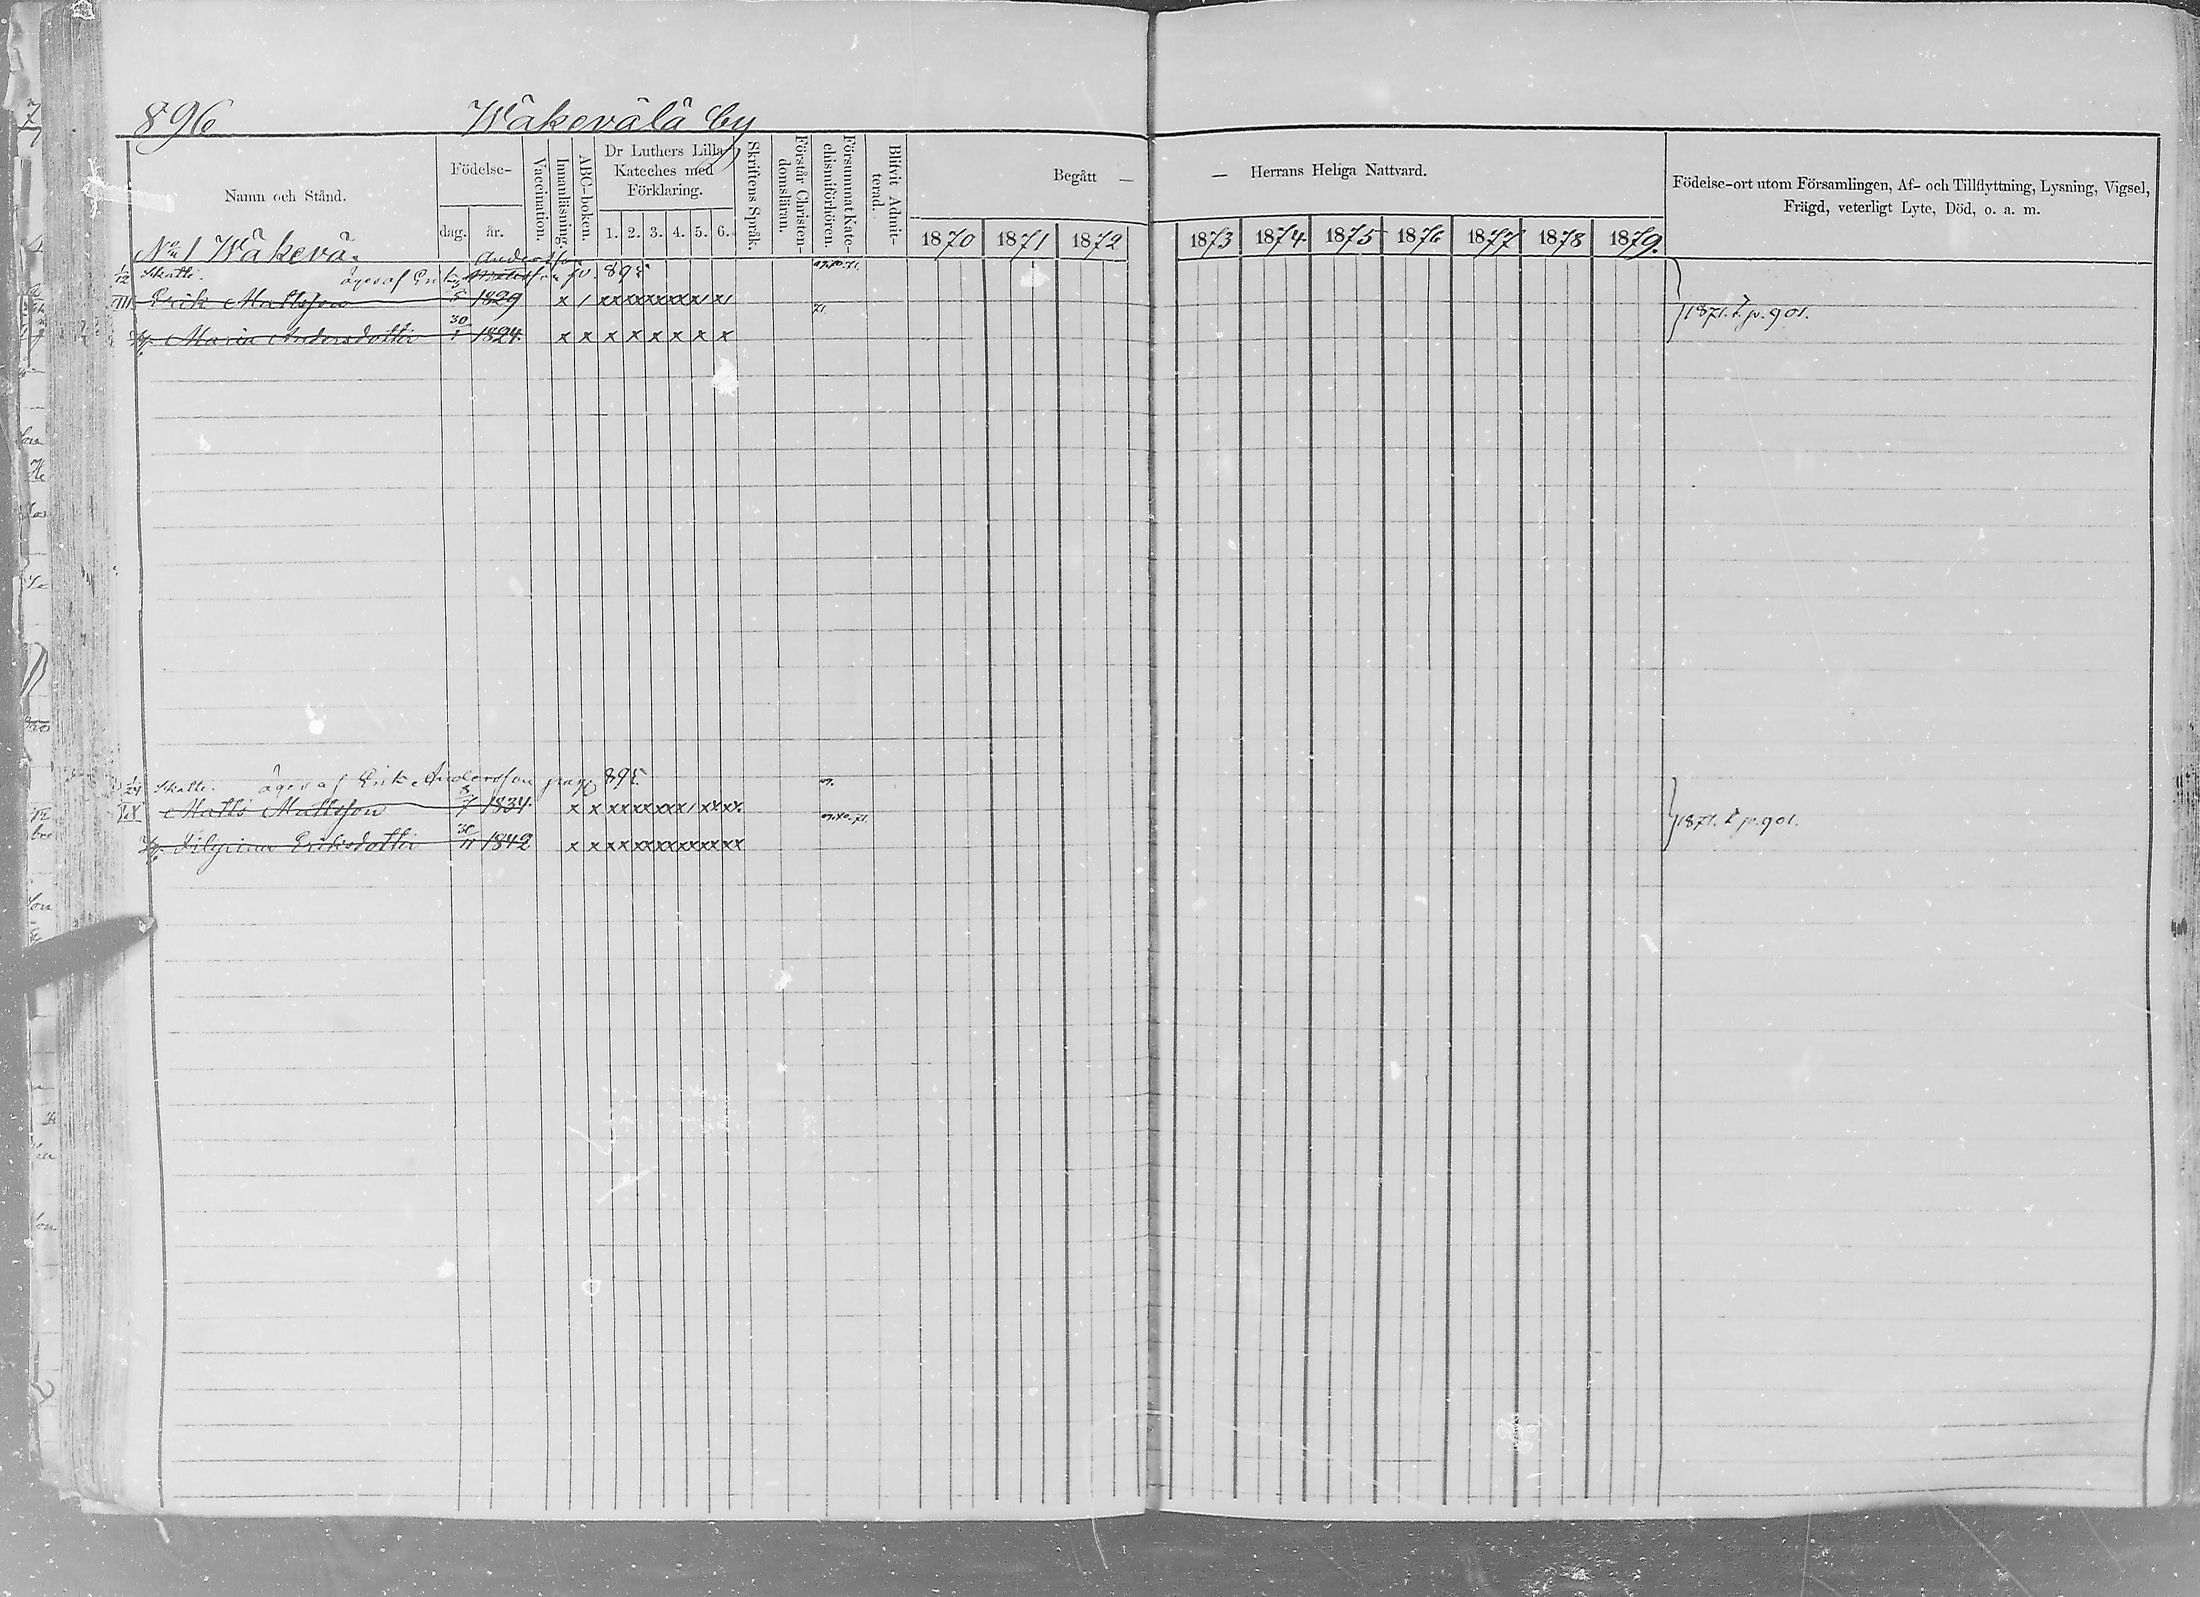 896 Wäkevälä by
Namn och Stånd.
Födelse-
dag. år.
Vaccination.
Innanläsning.
ABC-boken.
Dr Luthers Lilla
Kateches med
Förklaring.
1. 2. 3. 4. 5. 6.
Skriftens Språk.
Förstår Christen-
domsläran.
Försummat Kate-
chismiförhören.
Blifvit Admit-
terad.
Begått —
— Herrans Heliga Nattvard.
1870 1871 1872
1873 1874 1875 1876 1877 1878 1879.
Födelse-ort utom Församlingen, Af- och Tillflyttning, Lysning, Vigsel,
Frägd, veterligt Lyte, Död, o. a. m.
No 1 Wäkevä.
Andersson
1/12 Skatte. äges af Erik Mattsson p. 895
69.70.71.
III Erik Mattsson 5 1829 x / xx xx xx xx x/ x/
71.
Maria Andersdotter 30/1 1824 x x x x x x x x
1871. t. p. 901.
1/24 Skatte. äges af Erik Andersson pag 895
69.
Matts Mattsson 8/7 1834 x x xx xx xx x/ xx xx
69.70.71.
Eriksdotter 30/11 1842 x x xx xx xx xx xx xx
1871. t. p. 901.